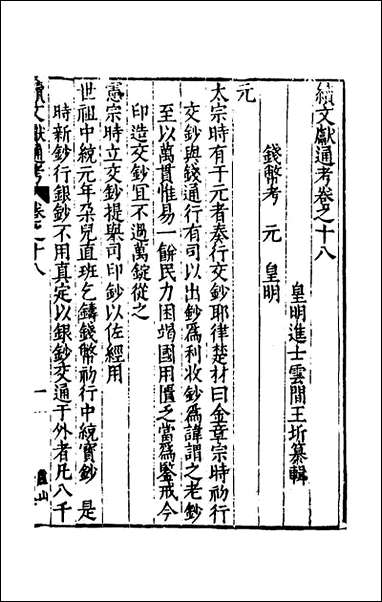 續文獻通考卷之十八
皇明進士雲間王圻纂輯
錢幣考 元 皇明
元
太宗時有于元者奏行交鈔耶律楚材曰金章宗時初行
交鈔與錢通行有司以出鈔爲利收鈔爲諱謂之老鈔
至以萬貫惟易一餅民力困竭國用匱乏當爲鑒戒今
印造交鈔宜不過萬錠從之
憲宗時立交鈔提舉司印鈔以佐經用
世祖中統元年朶兒直班乞鑄錢幣初行中統寶鈔 是
時新鈔行銀鈔不用真定以銀鈔交通于外者凡八千
續文獻通考 卷之十八
一